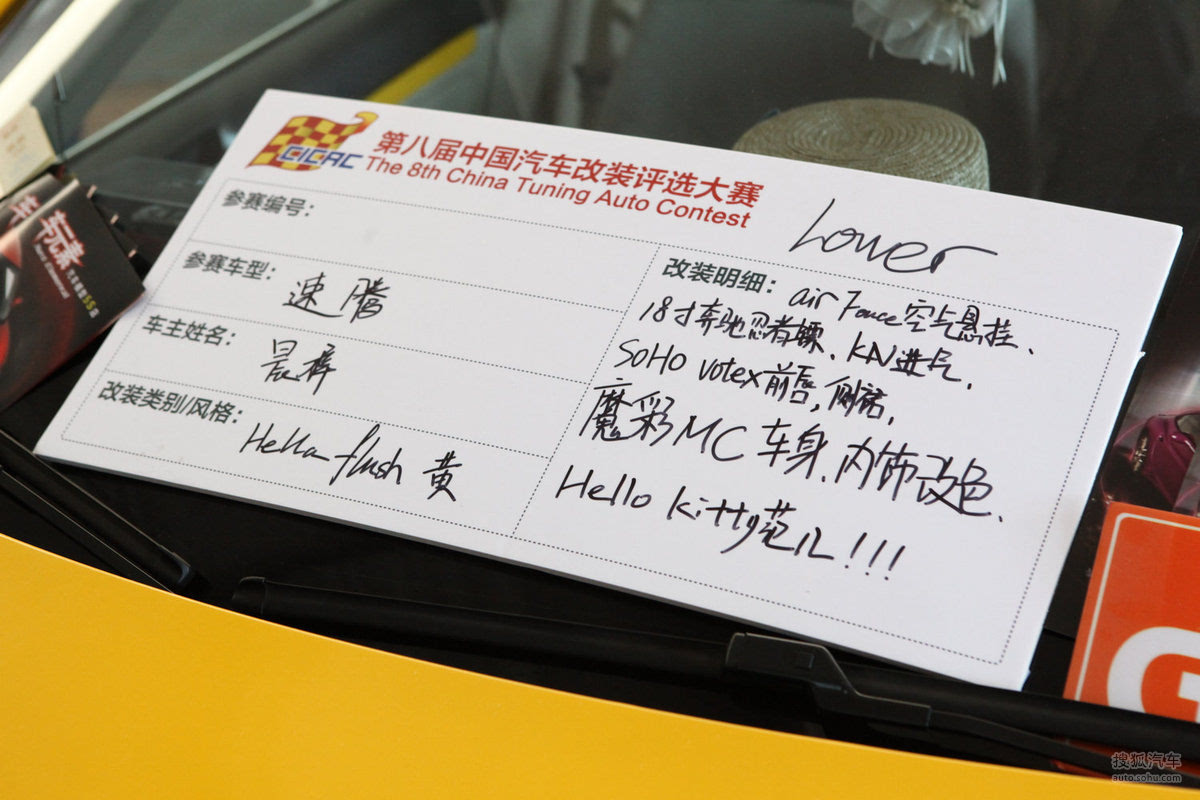 CICAC
第八届中国汽车改装评选大赛
The 8th China Tuning Auto Contest
参赛编号:
参赛车型: 速腾
车主姓名:
改装类别/风格: Hella flush 黄
Lower
改装明细: air Force 空气悬挂、
18寸奔驰忍者镖、KN进气、
SOHO votex前唇,侧裙,
魔彩MC车身、内饰改色、
Hello kitty范儿!!!
车元素
G
搜狐汽车
auto.sohu.com